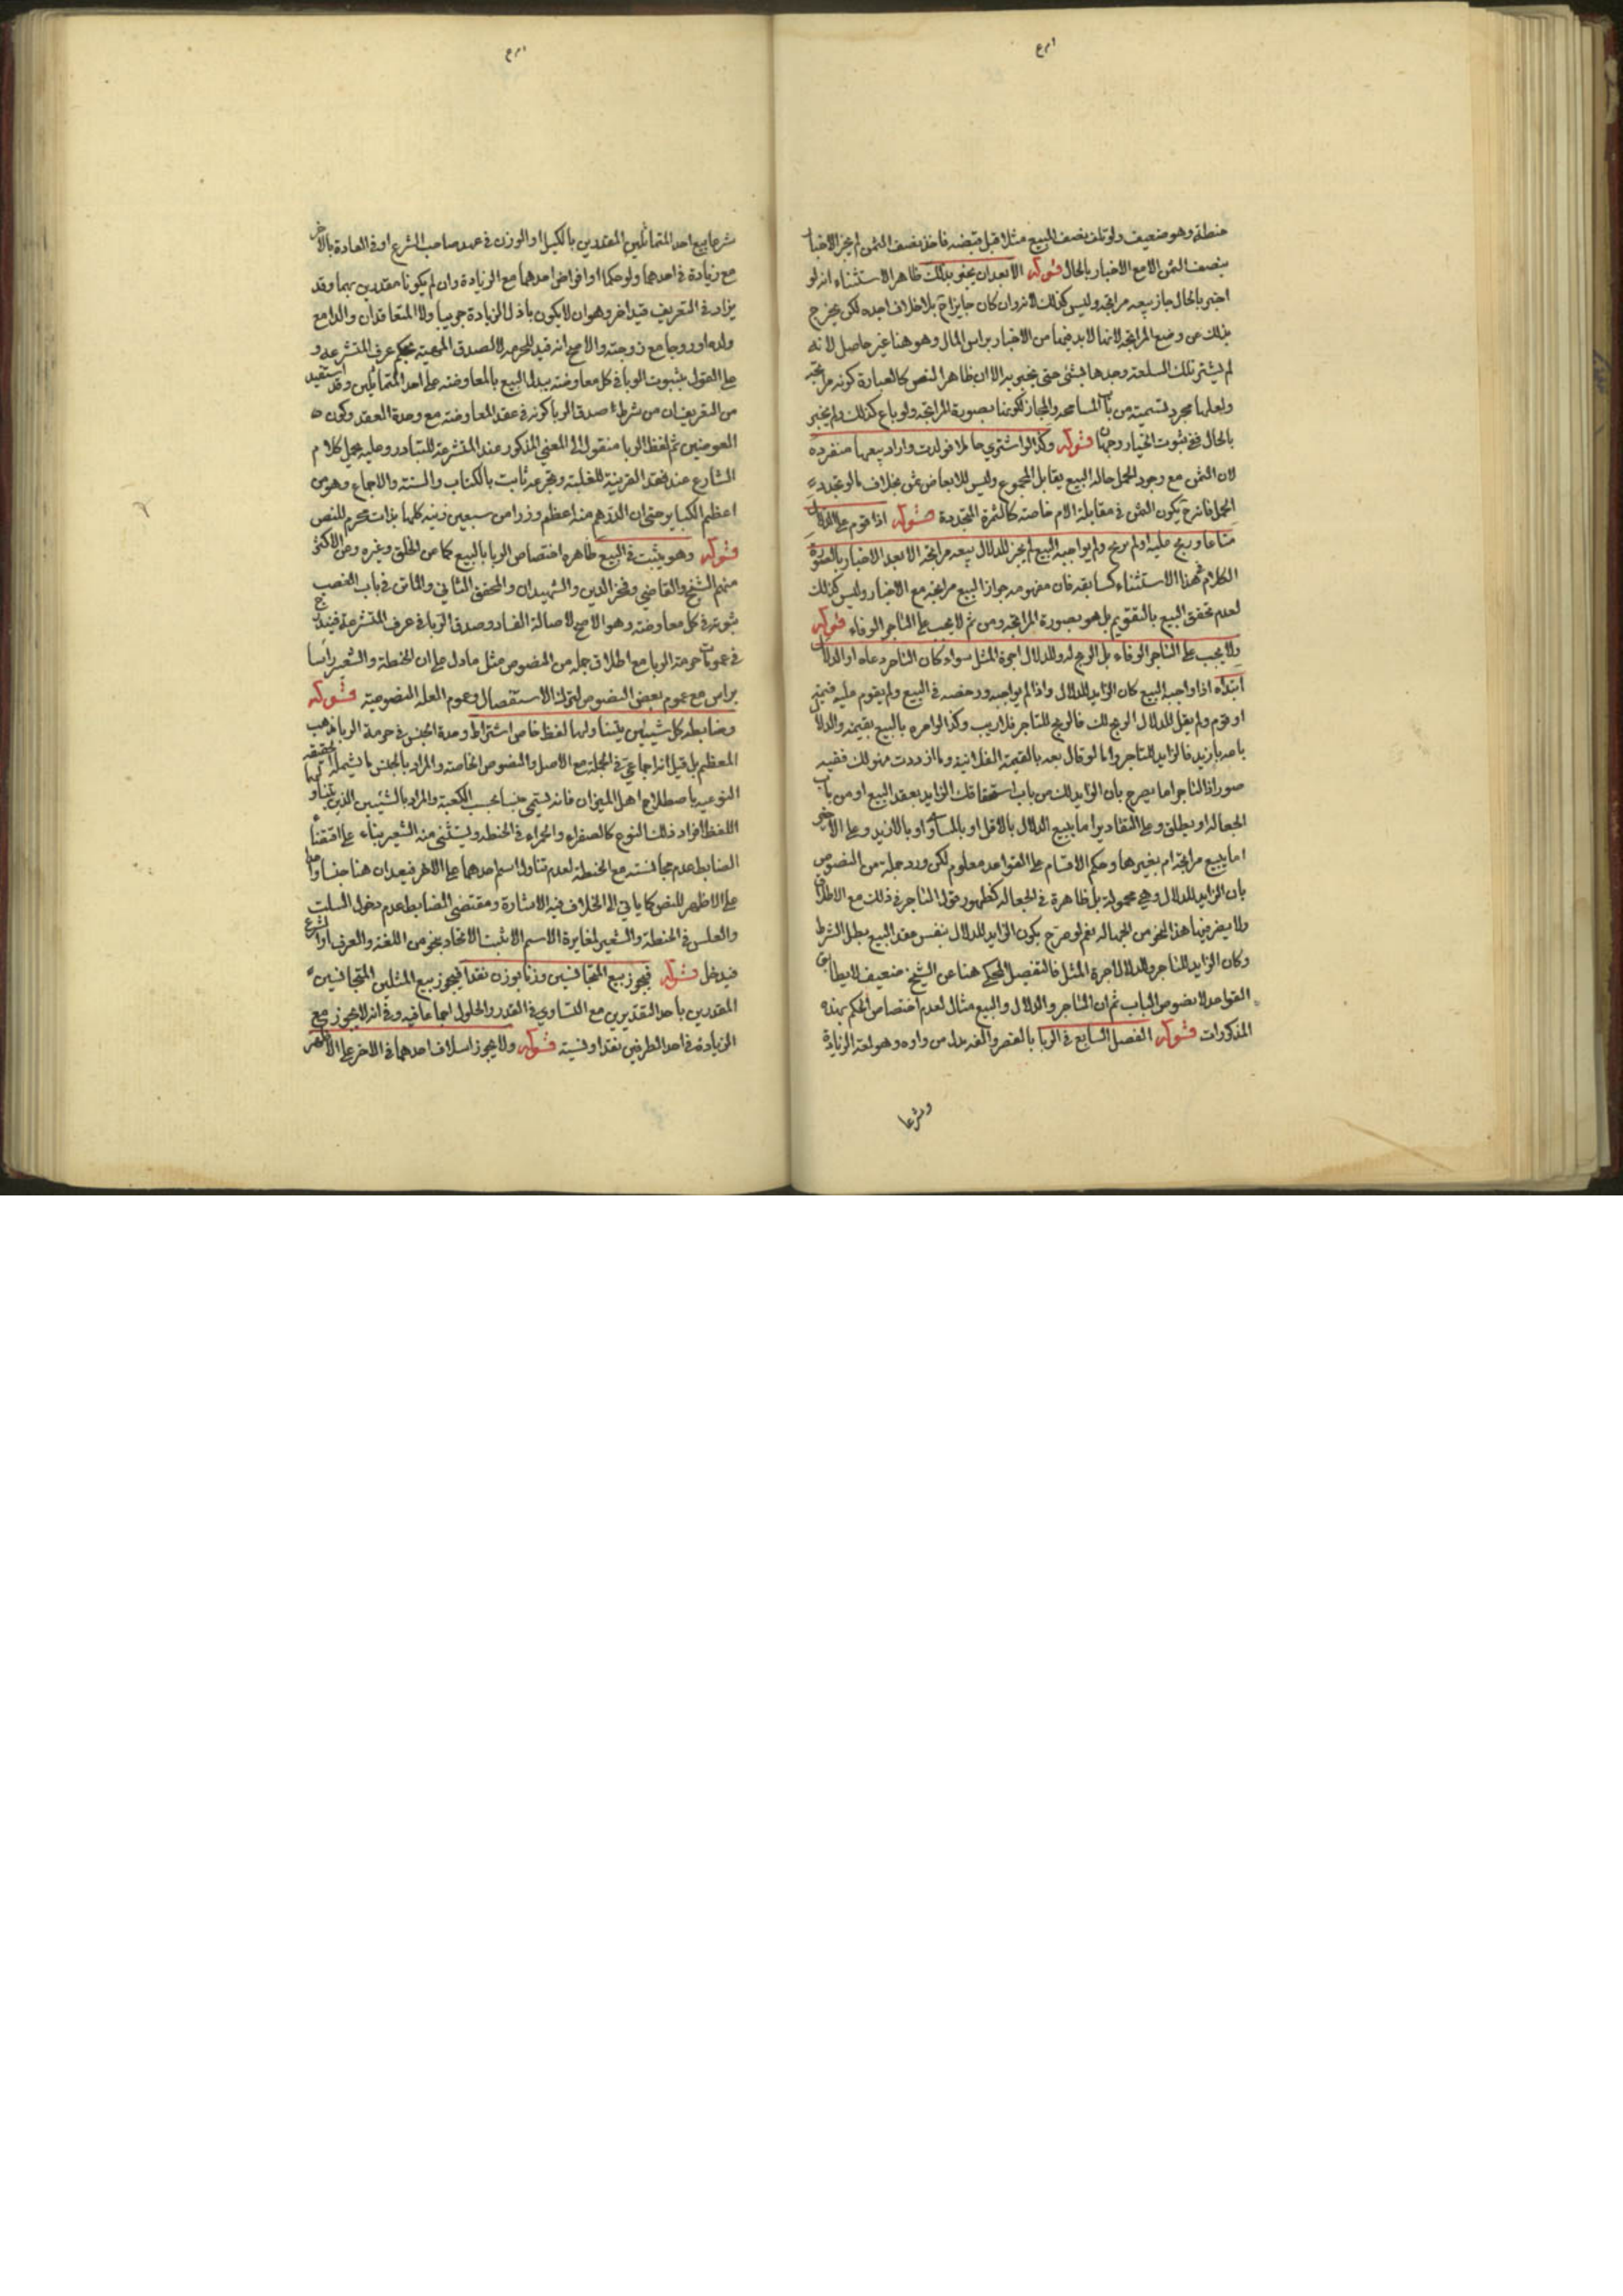 حنطة وهو ضعيف ولو تلف نصف المبيع مثلا قبل قبضه فاخذ بنصف الثمن لم يجز الاخبار
بنصف الثمن الا مع الاخبار بالحال قوله الا بعد ان يخبر بذلك ظاهر الاستثناء انه لو
اخبر بالحال جاز بيعه مرابحة وليس كذلك لانه وان كان جايزا ح بلا خلاف اجده لكن يخرج
بذلك عن وضع المرابحة لانها لابد فيها من الاخبار براس المال وهو هنا غير حاصل لانه
لم يشتر تلك السلعة وحدها بشئ حتى يخبر به الا ان ظاهر النص كالعبارة كونه مرابحة
ولعلها مجرد تسمية من باب المسامحة والمجاز لكونها بصورة المرابحة ولو باع كذلك ولم يخبر
بالحال ففي ثبوت الخيار وجهان قوله وكذا لو اشتري حاملا فولدت واراد بيعها منفردة
لان الثمن مع وجود الحمل حالة البيع يقابل المجموع وليس للابعاض ثمن بخلاف ما لو تجدد
الحمل فانه ح يكون الثمن في مقابلة الام خاصة كالثمرة المتجددة قوله اذا قوم على الدلال
متاعا وربح عليه او لم يربح ولم يواجبه البيع لم يجز للدلال بيعه مرابحة الا بعد الاخبار بالصورة
الكلام في هذا الاستثناء كسابقه فان مفهومه جواز البيع مرابحة مع الاخبار وليس كذلك
لعدم تحقق البيع بالتقويم بل هو بصورة المرابحة ومن ثم لا يجب على التاجر الوفاء قوله
ولا يجب على التاجر الوفاء بل الربح له وللدلال اجرة المثل سواء كان التاجر دعاه او الدلال
ابتداه اذا واجبه البيع كان الزايد للدلال واذا لم يواجبه ورخصه في البيع ولم يقوم عليه قيمة
او قوم ولم يقل للدلال الربح لك فالربح للتاجر بلا ريب وكذا لو امره بالبيع بقيمة والدلال
باعه بازيد فالزايد للتاجر واما لو قال بعه بالقيمة الفلانية وما ازددت فهو لك ففيه
صور اذ التاجر اما يصرح بان الزايد لك من باب استحقاقك الزايد بعقد البيع او من باب
الجعالة او يطلق وعلى التقادير اما يبيع الدلال بالاقل او بالمساوي او بالازيد وعلى الاخير
اما يبيع مرابحة ام بغيرها وحكم الاقسام على القواعد معلوم لكن ورد جملة من النصوص
بان الزايد للدلال وهي محمولة بل ظاهرة في الجعالة كظهور قول التاجر في ذلك مع الاطلاق
ولا يضر فيها هذا النحو من الجهالة نعم لو صرح بكون الزايد للدلال بنفس عقد البيع بطل الشرط
وكان الزايد للتاجر وللدلال اجرة المثل فالتفصيل المحكي هنا عن الشيخ ضعيف لا يطابق
القواعد لا نصوص الباب ثم ان التاجر والدلال والبيع مثال لعدم اختصاص الحكم بهذه
المذكورات قوله الفصل السابع في الربا بالقصر والفه بدل من واوه وهو لغة الزيادة
وشرعا
شرعا بيع احد المتماثلين المقدرين بالكيل او الوزن في عهد صاحب الشرع او في العادة بالاخر
مع زيادة في احدهما ولو حكما او اقراض احدهما مع الزيادة وان لم يكونا مقدرين بهما وقد
يزاد في التعريف قيد اخر وهو ان لا يكون باذل الزيادة حربيا ولا المتعاقدان والدا مع
ولده او زوجا مع زوجته والاصح انه قيد للحرمة لا لصدق المهية بحكم عرف المتشرعة و
على القول بثبوت الربا في كل معاوضة يبدل البيع بالمعاوضة على احد المتماثلين وقد استفيد
من التعريف ان من شرط صدق الربا كونه في عقد المعاوضة مع وحدة العقد وكون
العوضين ثم لفظ الربا منقول الى المعني المذكور عند المتشرعة للتبادر وعليه يحمل كلام
الشارع عند فقد القرينة للغلبة وتحريمه ثابت بالكتاب والسنة والاجماع وهو من
اعظم الكباير حتى ان الدرهم منه اعظم وزرا من سبعين زنية كلها بذات محرم للنص
قوله وهو يثبت في البيع ظاهره اختصاص الربا بالبيع كما من الحلي وغيره وعن الاكثر
منهم الشيخ والقاضي وفخر الدين والشهيدان والمحقق الثاني والماتن في باب الغصب
ثبوته في كل معاوضة وهو الاصح لاصالة الفساد وصدق الربا في عرف المتشرعة فيندرج
في عمومات حرمة الربا مع اطلاق جملة من النصوص مثل ما دل على ان الحنطة والشعير راسا
براس مع عموم بعض النصوص لترك الاستفصال وعموم العلة المنصوصة قوله
وضابطه كل شيئين يتناولهما لفظ خاص اشتراط وحدة الجنس في حرمة الربا مذهب
المعظم بل قيل انه اجماعي في الجملة مع الاصل والنصوص الخاصة والمراد بالجنس ما يشمله الحقيقة
النوعية باصطلاح اهل الميزان فانه يسمي جنسا بحسب اللغة والمراد بالشيئين الذين يتناولهما
اللفظ افراد ذلك النوع كالصفراء والحمراء في الحنطة ويستثني منه الشعير بناء على اقتضاء
الضابط عدم مجانسته مع الحنطة لعدم تناول اسم احدهما على الاخر فيعدان هنا جنسا واحدا
على الاظهر للنص كما ياتي الى الخلاف فيه الاشارة ومقتضي الضابط عدم دخول السلت
والعلس في الحنطة والشعير لمغايرة الاسم الا ان يثبت الاتحاد بنحو من اللغة والعرف او الشرع
فيدخل قوله فيجوز بيع المتجانسين وزنا بوزن نقدا فيجوز بيع المثلين المتجانسين
المقدرين باحد التقديرين مع التساوي في القدر والحلول اجماعا فيه وفي انه لا يجوز مع
الزيادة في احد الطرفين نقدا ونسية قوله ولا يجوز اسلاف احدهما في الاخر على الاظهر